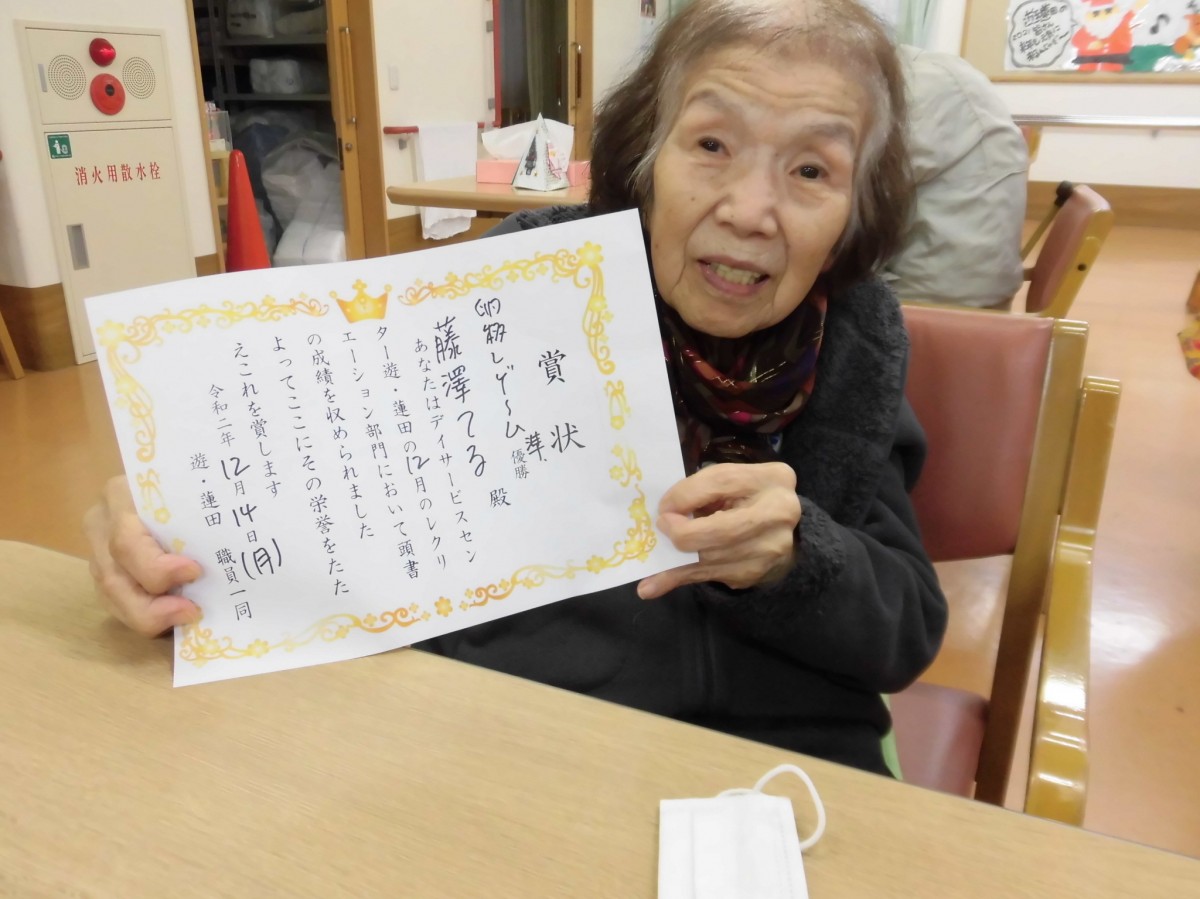 消火用散水栓
2021
賞状
しゲ〜ム 準優勝
藤澤てる 殿
あなたはデイサービスセン
ター遊・蓮田の12月のレクリ
エーション部門において頭書
の成績を収められました
よってここにその栄誉をたた
えこれを賞します
令和二年12月14日(月)
遊・蓮田 職員一同